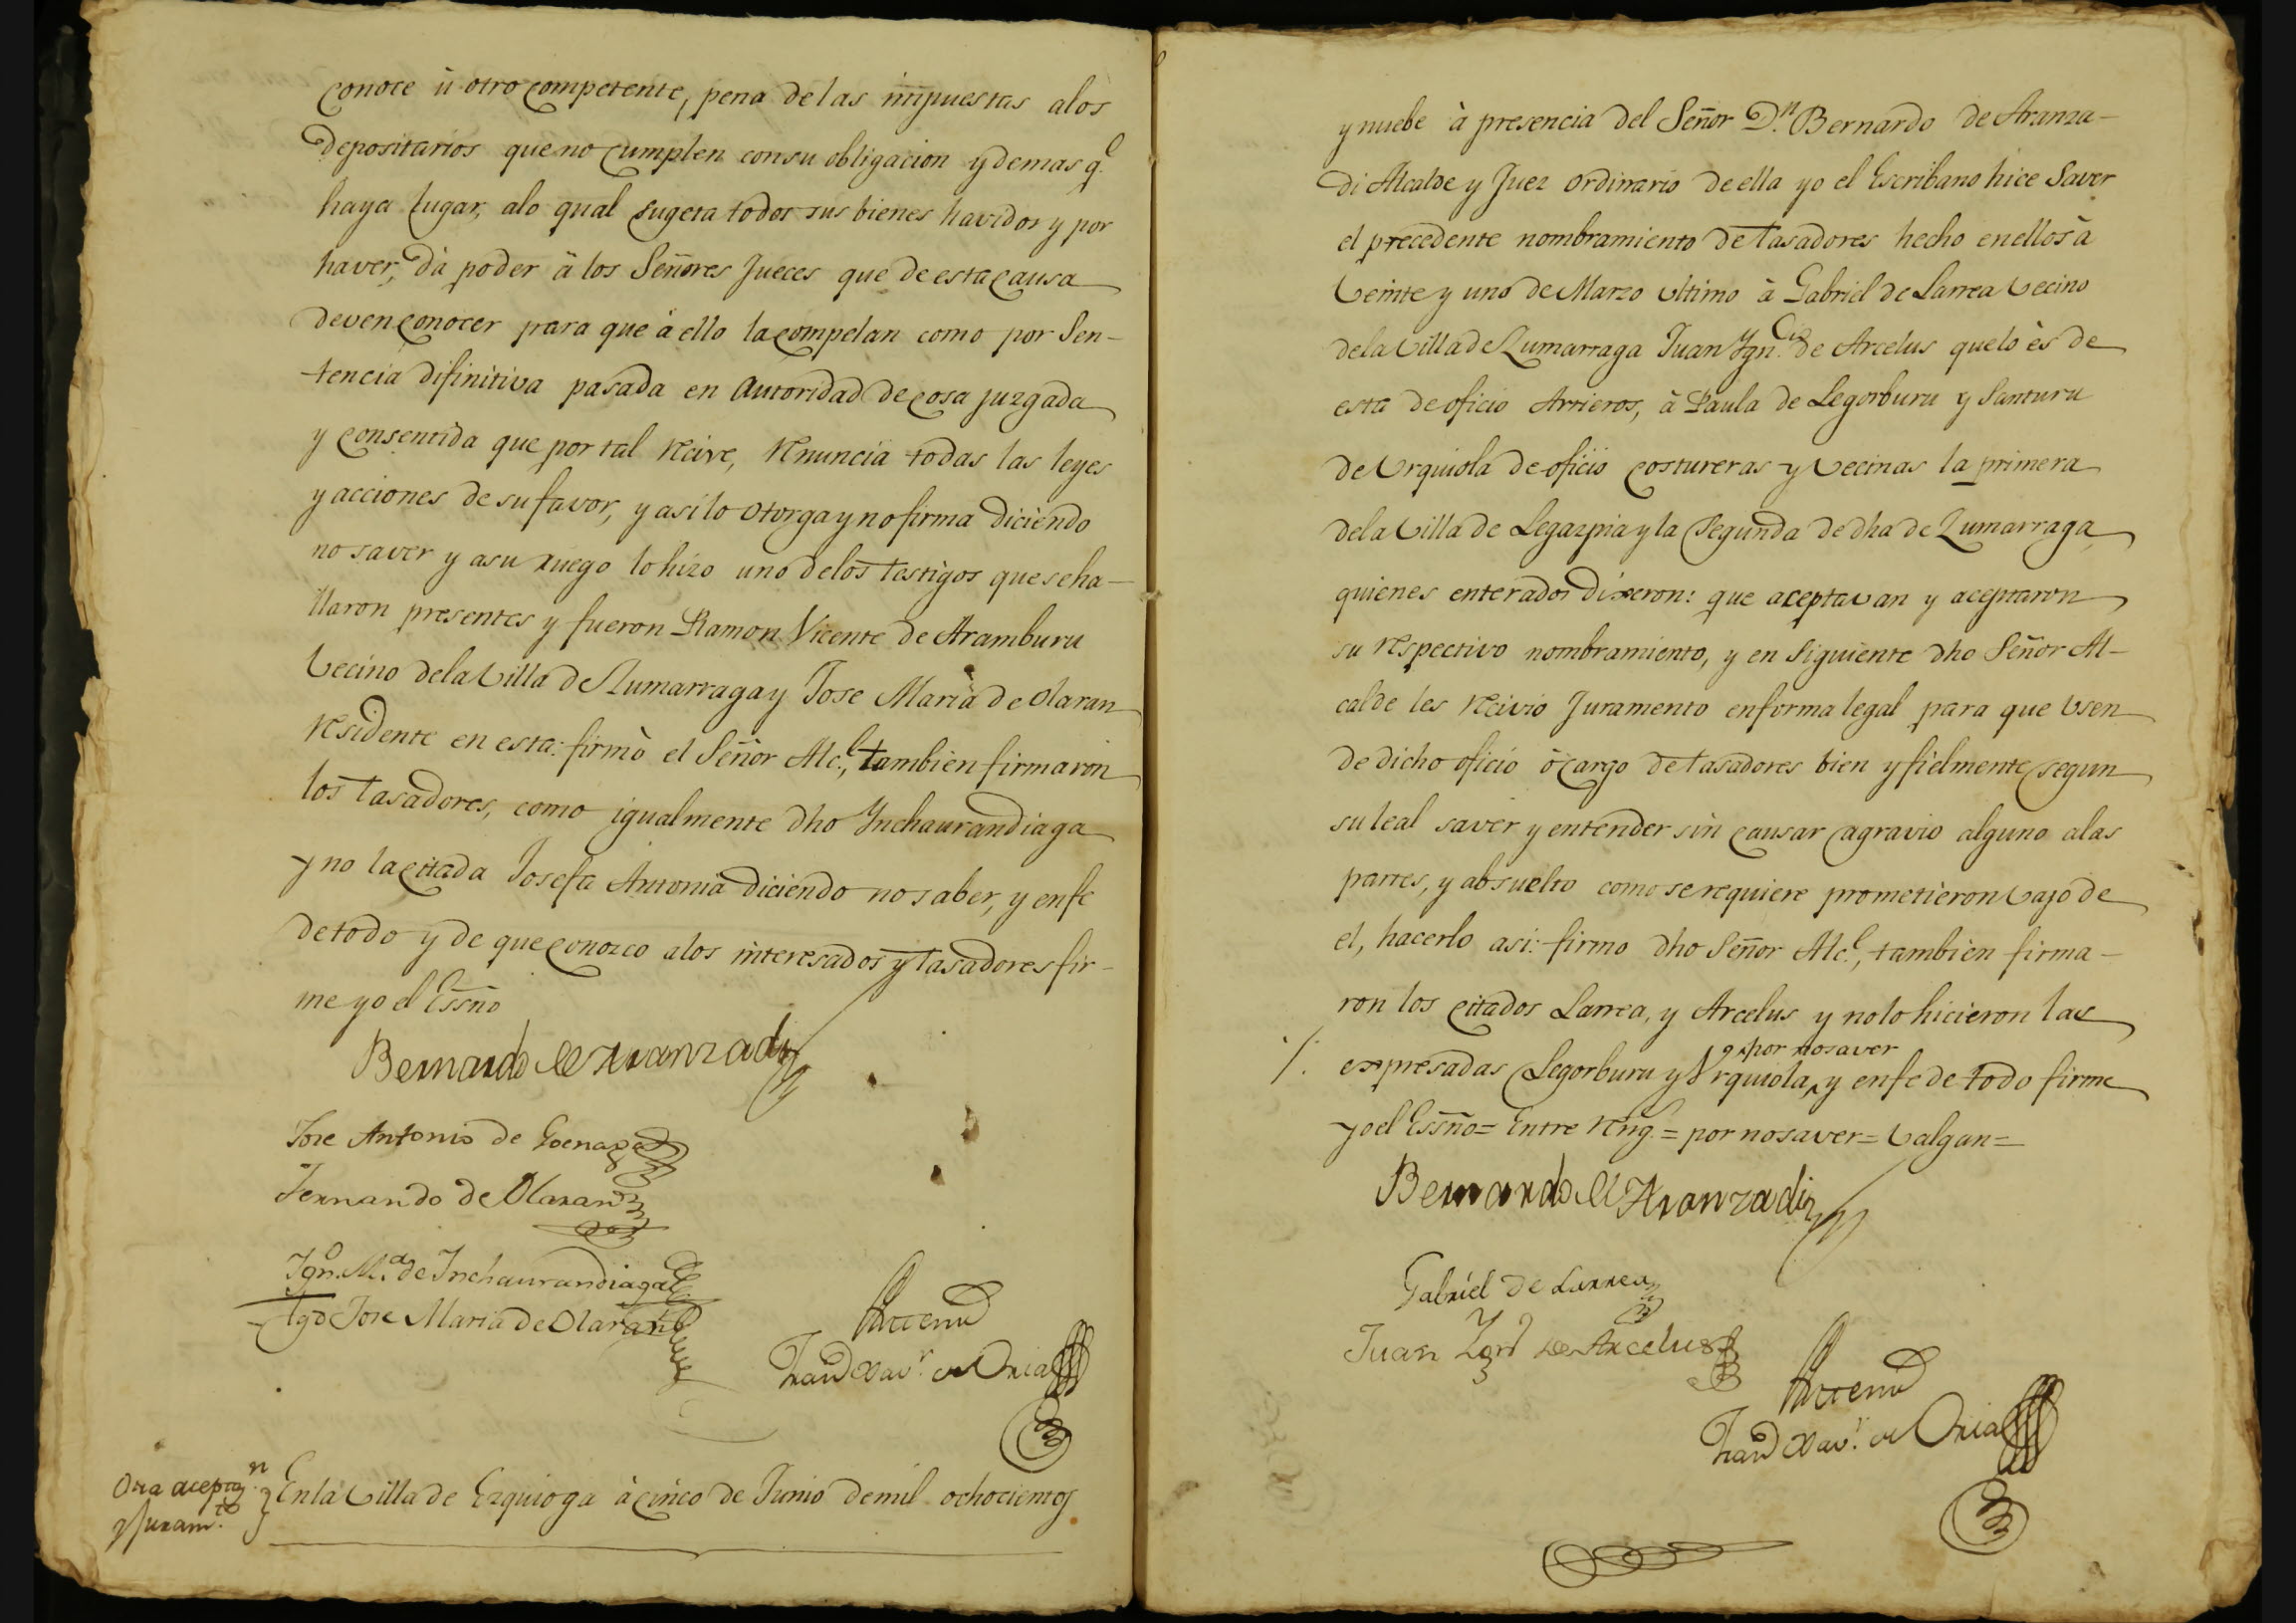 conoce ù otro competente, pena de las impuestas alos
depositarios que no cumplen con su obligacion y demas q.e
haya lugar, alo qual sugeta todos sus bienes havidos y por
haver, dà poder à los Señores Jueces que de esta causa
deven conocer para que à ello la compelan como por Sen-
tencia difinitiva pasada en Autoridad de cosa juzgada
y consentida que por tal recive, renuncia todas las leyes
y acciones de su favor, y asi lo otorga y no firma diciendo
no saver y asu ruego lo hizo uno delos testigos que se ha-
llaron presentes y fueron Ramon Vicente de Aramburu
Vecino dela Villa de Zumarraga y Jose Maria de Olaran
residente en esta: firmò el Señor Alc.e, tambien firmaron
los Tasadores, como igualmente dho Ynchaurandiaga
y no la citada Josefa Antonia diciendo no saber, y enfe
de todo y de que conozco alos interesados y Tasadores fir-
me yo el Essño
Bernardo de Aranzadi
Jose Antonio de Goenaga
Fernando de Olaran
Ygn.o M.a de Inchaurandiaga
Tgo Jose Maria de Olaran
Antemi
Fran.co Xav.r de Oria
Otra acepta.n
y Juram.to
En la Villa de Ezquioga à cinco de Junio de mil ochocientos
y nuebe à presencia del Señor D.n Bernardo de Aranza-
di Alcalde y Juez ordinario de ella yo el Escribano hice Saver
el precedente nombramiento de Tasadores hecho en ellos à
Veinte y uno de Marzo ultimo à Gabriel de Larrea Vecino
dela Villa de Zumarraga Juan Ygn.cio de Arcelus que lo ès de
esta de oficio Arrieros, à Paula de Legorburu y Santuru
de Urquiola de oficio costureras y Vecinas la primera
dela Villa de Legazpia y la Segunda de dha de Zumarraga
quienes enterados dixeron: que aceptavan y aceptaron
su respectivo nombramiento, y en Siguiente dho Señor Al-
calde les recivio Juramento en forma legal para que Usen
de dicho oficio ò cargo de Tasadores bien y fielmente segun
su leal saver y entender sin causar agravio alguno alas
partes, y absuelto como se requiere prometieron Vajo de
el, hacerlo asi: firmo dho Señor Alc.e, tambien firma-
ron los citados Larrea, y Arcelus y no lo hicieron las
por no saver
expresadas Legorburu y Urquiola, y enfe de todo firme
yo el Essño = Entre reng.s = por no saver = Valgan =
Bernardo de Aranzadi
Gabriel de Larrea
Juan Ygn.o de Arcelus
Antemi
Fran.co Xav.r de Oria